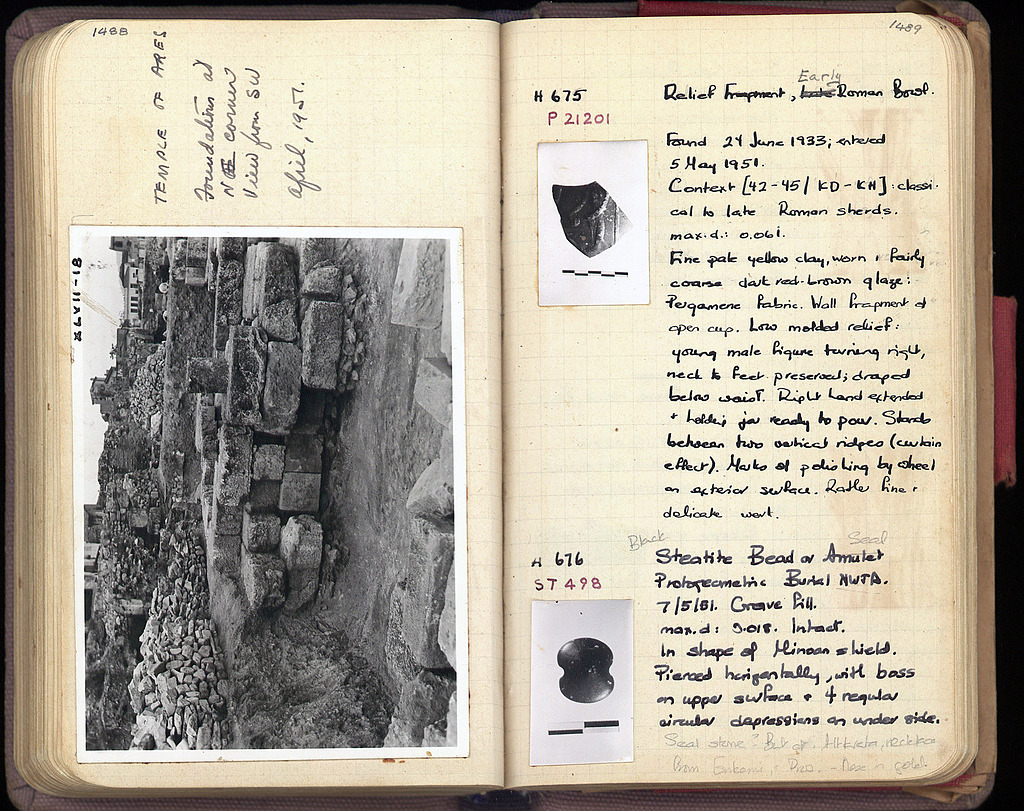 1488
TEMPLE OF ARES
Foundations at
N corner
View from SW
April, 1951.
XLVII-18
1489
H 675
P 21201
Early
Relief Fragment, Late Roman Bowl.
Found 24 June 1933; entered
5 May 1951.
Context [42-45/KD-KH]: classi-
cal to late Roman sherds.
max.d.: 0.061.
Fine pale yellow clay, worn + fairly
coarse dark red-brown glaze:
Pergamene Fabric. Wall fragment of
open cup. Low molded relief:
young male figure turning right,
neck to feet preserved; draped
below waist. Right hand extended
+ holding jar ready to pour. Stands
between two vertical ridges (curtain
effect). Marks of polishing by wheel
on exterior surface. Rather fine +
delicate work.
Black
Seal
H 676
ST 498
Steatite Bead or Amulet
Protogeometric Burial NWTA.
7/5/51. Grave fill.
max.d: 0.018. Intact.
In shape of Minoan shield.
Pierced horizontally, with boss
on upper surface + 4 regular
circular depressions on under side.
Seal stone? But cf. necklace
from Enkomi, in gold.